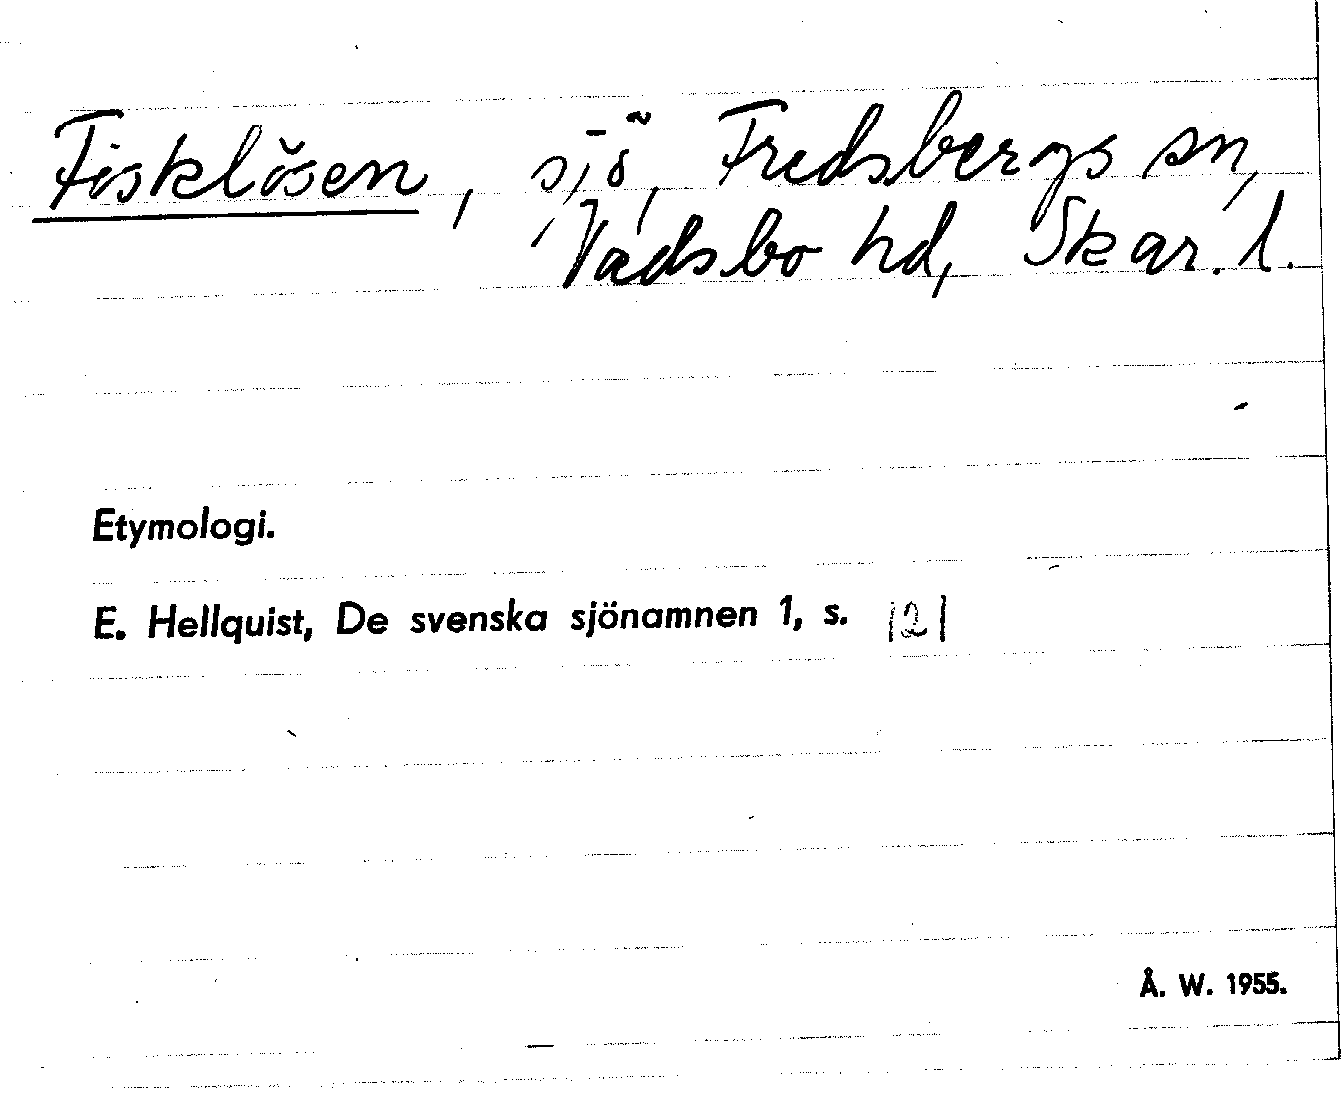 Fisklösen, sjö, Fredsbergs sn,
Vadsbo hd, Skar. l.
Etymologi.
E. Hellquist, De svenska sjönamnen 1, s. 121
Å. W. 1955.